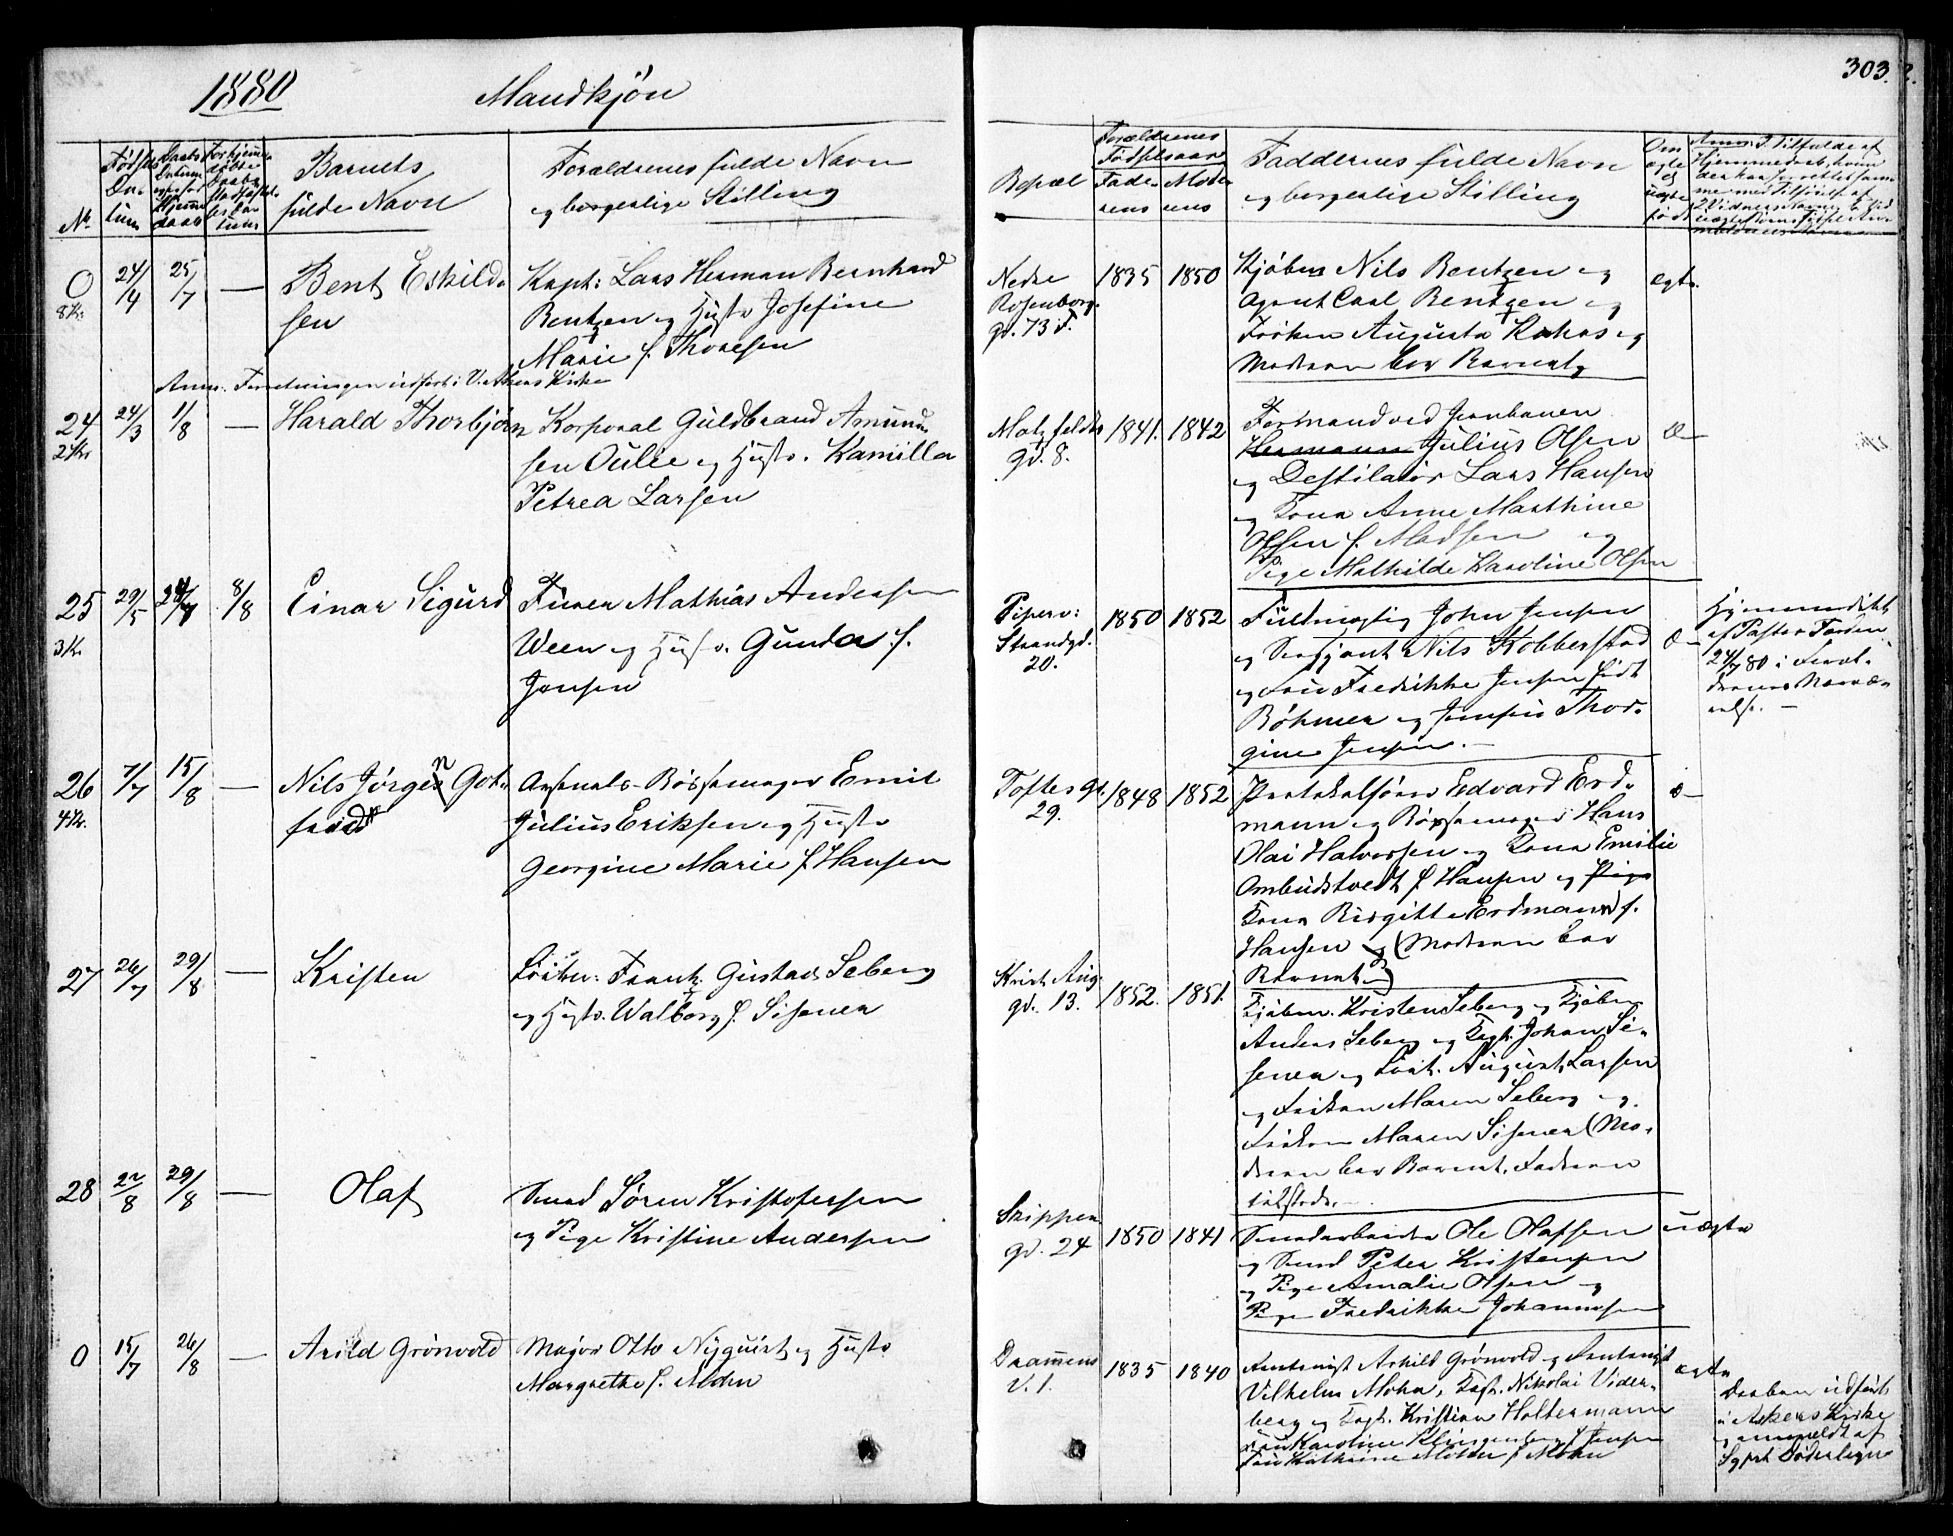 1880 Mandkjön
303.
No
Födsels Da- tum
Daabs Datum
Barnets
fulde Navn
Forældrenes fulde Navn
og borgerlige Stilling
Bopæl
Forældrenes
Födselsaar
Fade- rens
Mode- rens
Faddernes fulde Navn
og borgerlige Stilling
Om ægte el uægte född
0
8 Kr.
24/4
25/7
—
Bent Eskild-
sen
Kapt: Lars Herman Bernhard
Bentzen og Hustr Josefine
Marie f. Thoresen
Nedre
Rosenborg-
gd. 73 F.
1835
1850
Kjöbm Nils Bentzen og
Agent Carl Bentzen og
Fröken Augusta og
Moderen bar Barnet
ægte.
Anm. Forretningen udfört i V. Akers Kirke
24
2 Kr
24/3
1/8
—
Harald Thorbjörn
Korporal Guldbrand Amund-
sen Oulie og Hustr. Kamilla
Petrea Larsen
Motzfeldts
gd. 8.
1841.
1842
Formand ved Jernbanen
Hermann Julius Olsen
og Destilatör Lars Hansen
og Kona Anne Marthine
Olsen f. Madsen og
Pige Mathilde Karoline Olsen
æ—
25
3 Kr.
29/5
24/7
8/8
Einar Sigurd
Furer Mathias Andersen
Ween og Hustr. Gunda f.
Jensen
Piperv:
Strandgd.
20.
1850
1852
Fuldmægtig John Jensen
og Sersjant Nils Kobberstad
og Fru Fredrikke Jensen född
Böhmer og Jomfru Thor-
gine Jensen.—
æ—
Hjemmedöbt
af Pastor
24/7 80 i Foræl-
drenes Nærvæ-
relse. —
26
4 Kr.
7/7
15/8
—
Nils Jörgen Got-
fred
Arsenals-Bössemager Emil
Julius Eriksen og Hustr
Georgine Marie f. Hansen
Toftes gd.
29.
1848
1852
Protokolförer Edvard Erd-
mann og Bössemager Hans
Olai Halvorsen og Kona Emilie
Ombudstvedt f Hansen og Pige
Kona Birgitte Erdmann f.
Hansen og (Moderen bar
Barnet)
æ—
27
26/7
29/8
—
Kristen
Löitn: Frantz Gustav Seberg
og Hustr. Walborg f. Sisener
Krist. Aug
gd. 13.
1852.
1851.
Kjöbm. Kristen Seberg og Kjöbm
Anders Seberg og Kapt. Johan Si-
sener og Löit. August Larsen
og Fröken Maren Seberg og
Fröken Maren Sisener (Mo-
deren bar Barnet, Faderen
tilstede.—
28
22/8
29/8
—
Olaf
Smed Sören Kristofersen
og Pige Kristine Andersen
Skipper
gd. 24
1850
1841
Smedarbeider Ole Olafsen
og Smed Peter Kristensen
og Pige Amalie Olsen og
Pige Fredrikke Johannesen
uægte
0
15/7
26/8
—
Arild Grönvold
Major Otto Nyquist og Hustr
Margrethe f. Mohn
Drammens
V. 1.
1835
1840
Amtmand Arhild Grönvold og
Vilhelm Mohn, Kapt. Nikolai Vider-
berg og Kapt. Kristian Holtermann
Fru Karoline Klingenberg f Jensen
Fru Kathrine f Mohn
ægte
Daaben udfört
i Askers Kirke
og anmeldt af
Sgprt Döderlein